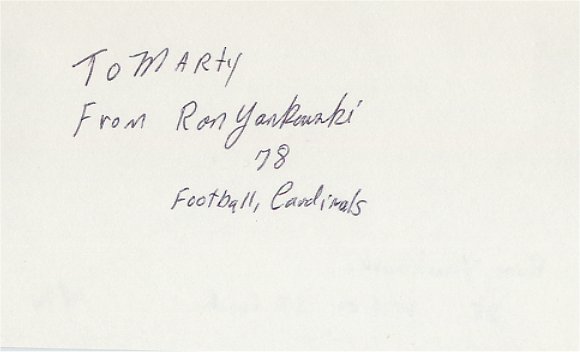 To MARty
From Ron Yankowski
78
Football, Cardinals